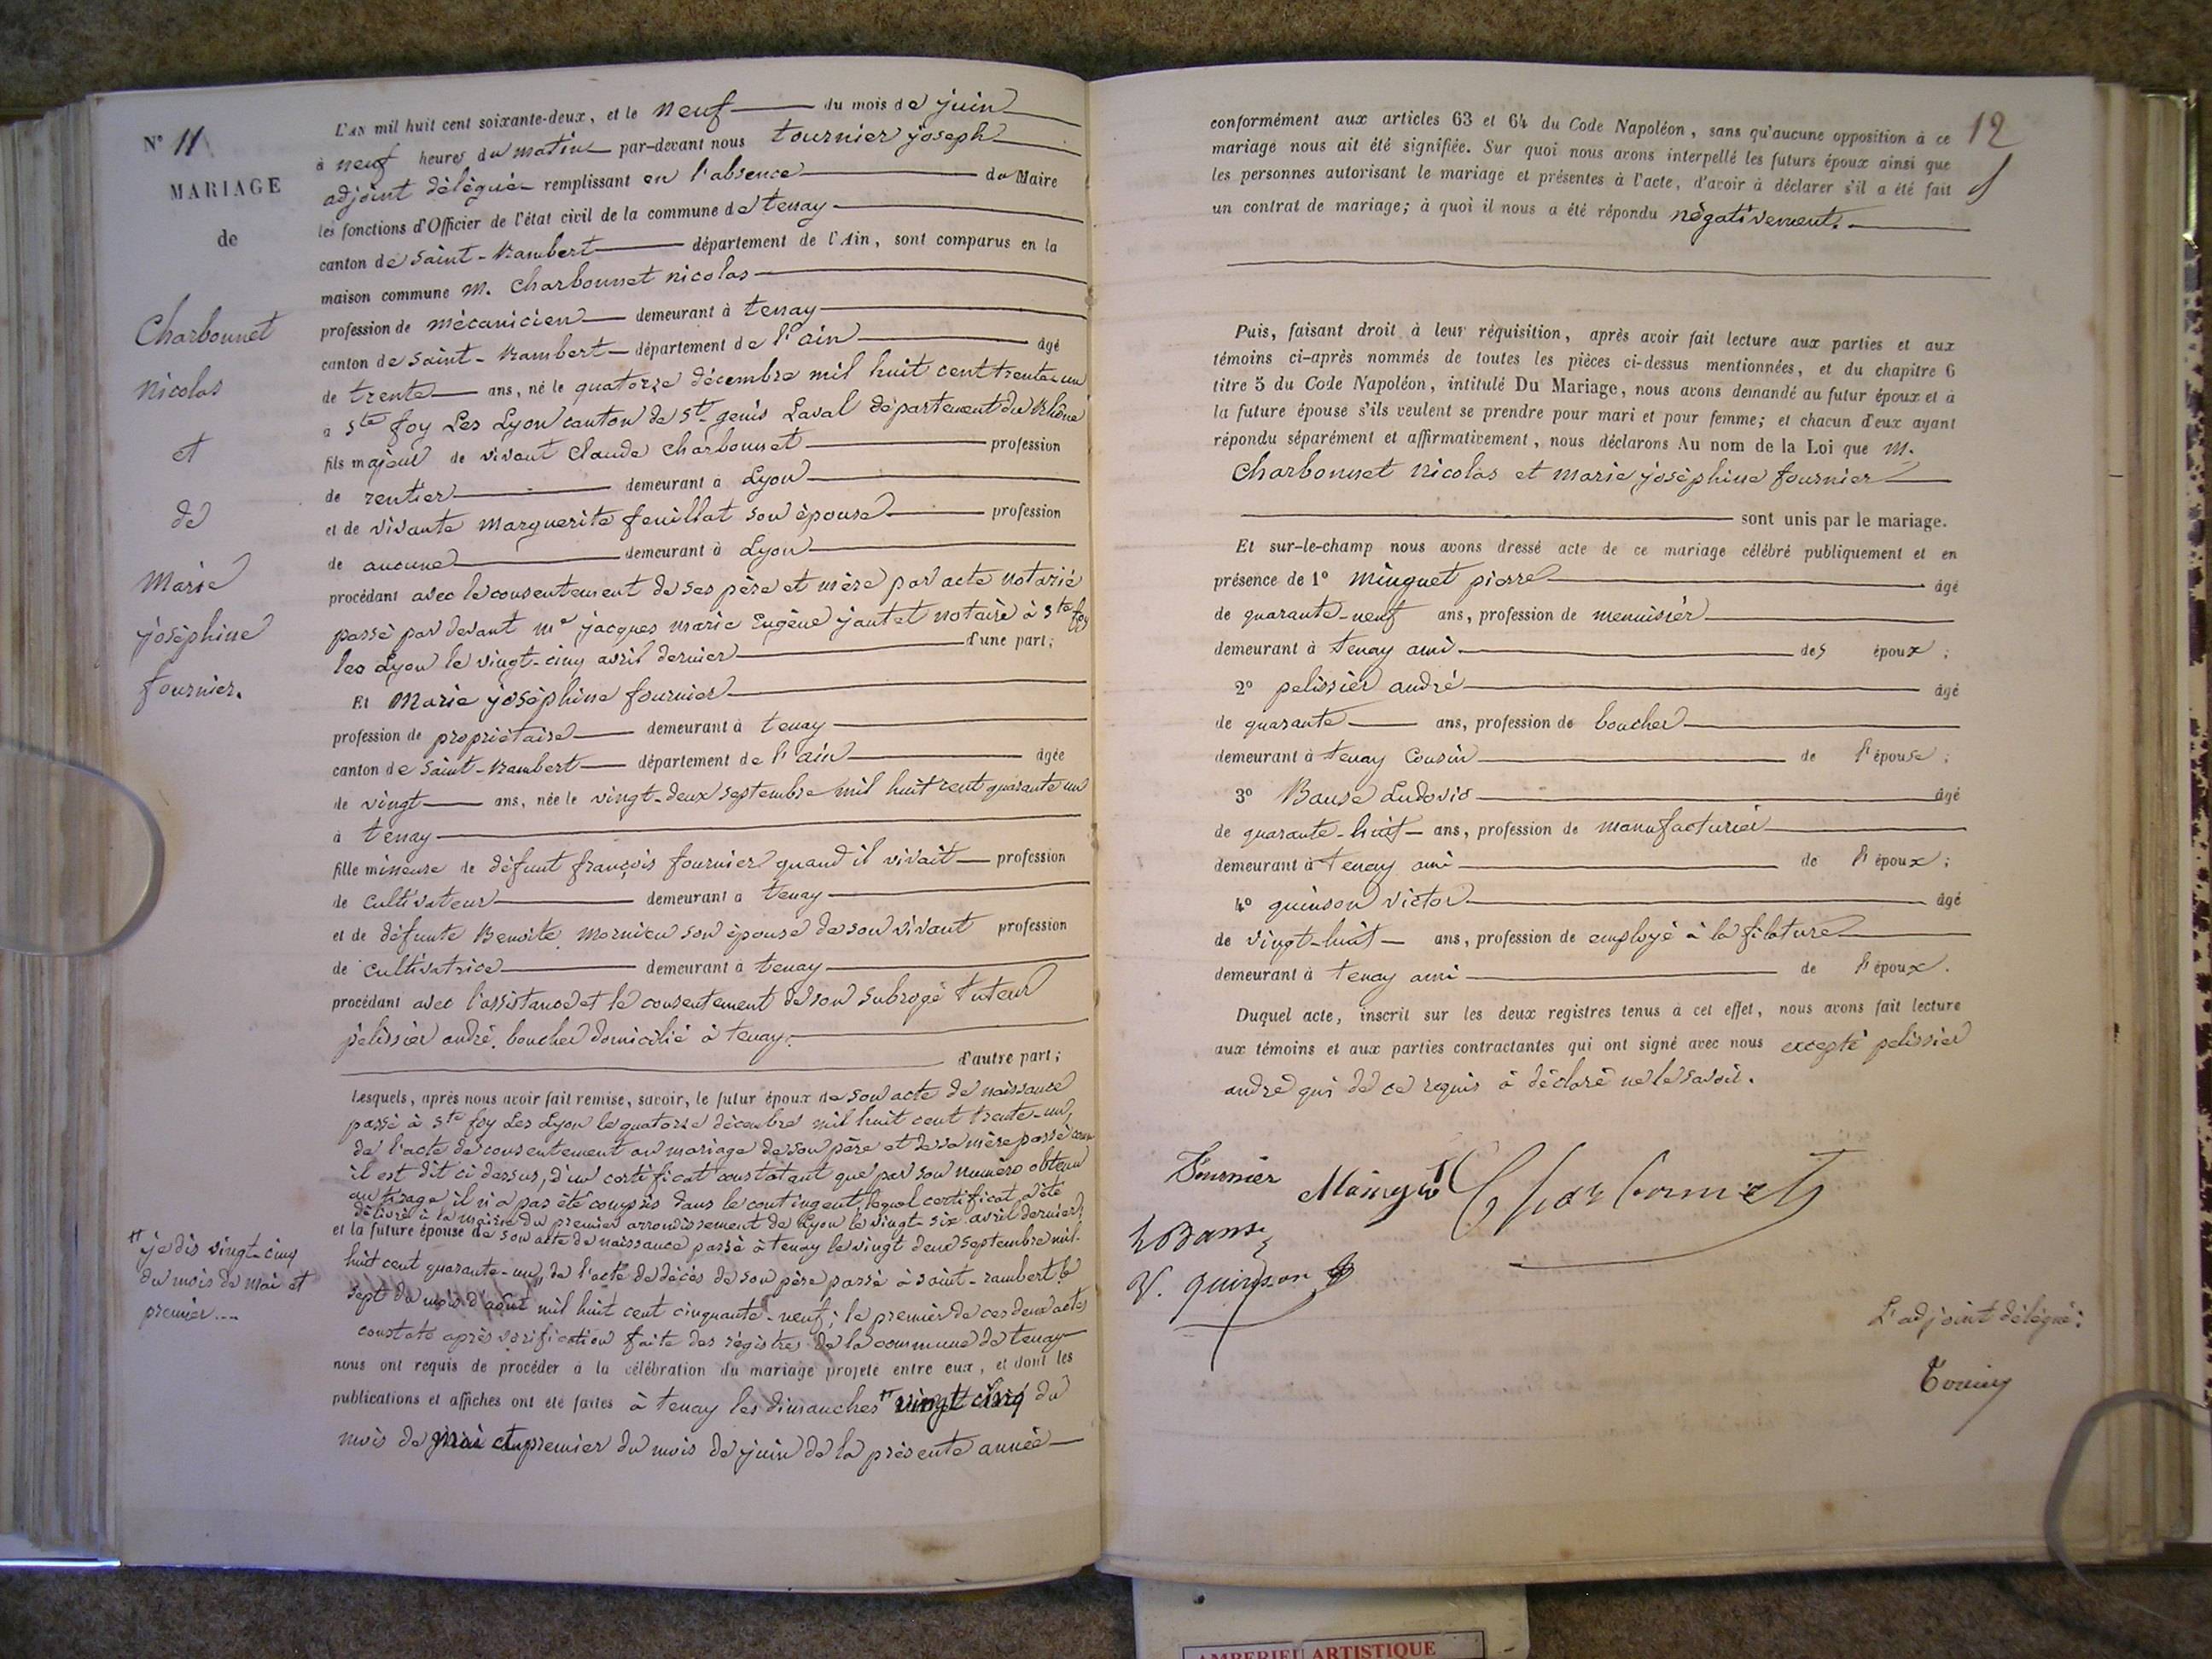 N° 11
MARIAGE
de
Charbonnet
nicolas
et
de
Marie
joséphine
fournier.
L'AN mil huit cent soixante-deux, et le neuf du mois de juin
à neuf heures du matin par-devant nous tournier joseph
adjoint délégué remplissant en l'absence du Maire
les fonctions d'Officier de l'état civil de la commune de tenay
canton de saint-Rambert département de l'Ain, sont comparus en la
maison commune M. Charbonnet nicolas
profession de mécanicien demeurant à tenay
canton de saint-Rambert département de l'ain âgé
de trente ans, né le quatorze décembre mil huit cent trente-un
à Ste foy Les Lyon canton de St genis Laval département du Rhône
fils majeur de vivant Claude Charbonnet profession
de rentier demeurant à Lyon
et de vivante Marguerite feuillat son épouse profession
de aucune demeurant à Lyon
procédant avec le consentement de ses père et mère par acte notarié
passé par devant Me jacques marie Eugène jantet notaire à Ste foy
les Lyon le vingt-cinq avril dernier d'une part;
Et Marie joséphine fournier
profession de propriétaire demeurant à tenay
canton de Saint-Rambert département de l'ain âgée
de vingt ans, née le vingt-deux septembre mil huit cent quarante un
à tenay
fille mineure de défunt françois fournier quand il vivait profession
de cultivateur demeurant à tenay
et de défunte Benoite Mornieu son épouse de son vivant profession
de cultivatrice demeurant à tenay
procédant avec l'assistance et le consentement de son subrogé tuteur
pélissier andré, boucher domicilié à tenay.
d'autre part;
Lesquels, après nous avoir fait remise, savoir, le futur époux de son acte de naissance
passé à Ste foy Les Lyon le quatorze décembre mil huit cent trente-un,
de l'acte de consentement au mariage de son père et de sa mère passé comme
il est dit ci dessus, d'un certificat constatant que par son numéro obtenu
au tirage il n'a pas été compris dans le contingent, lequel certificat a été
délivré à la mairie du premier arrondissement de Lyon le vingt-six avril dernier;
et la future épouse de son acte de naissance passé à tenay le vingt deux septembre mil-
huit cent quarante-un, de l'acte de décès de son père passé à saint-rambert le
sept du mois d'août mil huit cent cinquante-neuf; le premier de ces deux actes
constaté après vérification faite des régistres de la commune de tenay
nous ont requis de procéder à la célébration du mariage projeté entre eux, et dont les
publications et affiches ont été faites à tenay les dimanches vingt cinq du
mois de mai et premier du mois de juin de la présente année
je dis vingt-cinq
du mois de mai et
premier ...
12
conformément aux articles 63 et 64 du Code Napoléon, sans qu'aucune opposition à ce
mariage nous ait été signifiée. Sur quoi nous avons interpellé les futurs époux ainsi que
les personnes autorisant le mariage et présentes à l'acte, d'avoir à déclarer s'il a été fait
un contrat de mariage; à quoi il nous a été répondu négativement.
Puis, faisant droit à leur réquisition, après avoir fait lecture aux parties et aux
témoins ci-après nommés de toutes les pièces ci-dessus mentionnées, et du chapitre 6
titre 5 du Code Napoléon, intitulé Du Mariage, nous avons demandé au futur époux et à
la future épouse s'ils veulent se prendre pour mari et pour femme; et chacun d'eux ayant
répondu séparément et affirmativement, nous déclarons Au nom de la Loi que M.
Charbonnet Nicolas et marie joséphine fournier
sont unis par le mariage.
Et sur-le-champ nous avons dressé acte de ce mariage célébré publiquement et en
présence de 1° Minguet pierre âgé
de quarante-neuf ans, profession de menuisier
demeurant à tenay ami des époux;
2° pelissier andré âgé
de quarante ans, profession de boucher
demeurant à tenay Cousin de l'épouse;
3° Banse Ludovic âgé
de quarante-huit ans, profession de manufacturier
demeurant à tenay ami de l'époux;
4° quinson victor âgé
de vingt-huit ans, profession de employé à la filature
demeurant à tenay ami de l'époux.
Duquel acte, inscrit sur les deux registres tenus à cet effet, nous avons fait lecture
aux témoins et aux parties contractantes qui ont signé avec nous excepté pelissier
andré qui de ce requis à déclaré ne le savoir.
Fournier Mainguet Charbonnet
L Banse
V. quinson
L'adjoint délégué:
AMBERIEU ARTISTIQUE